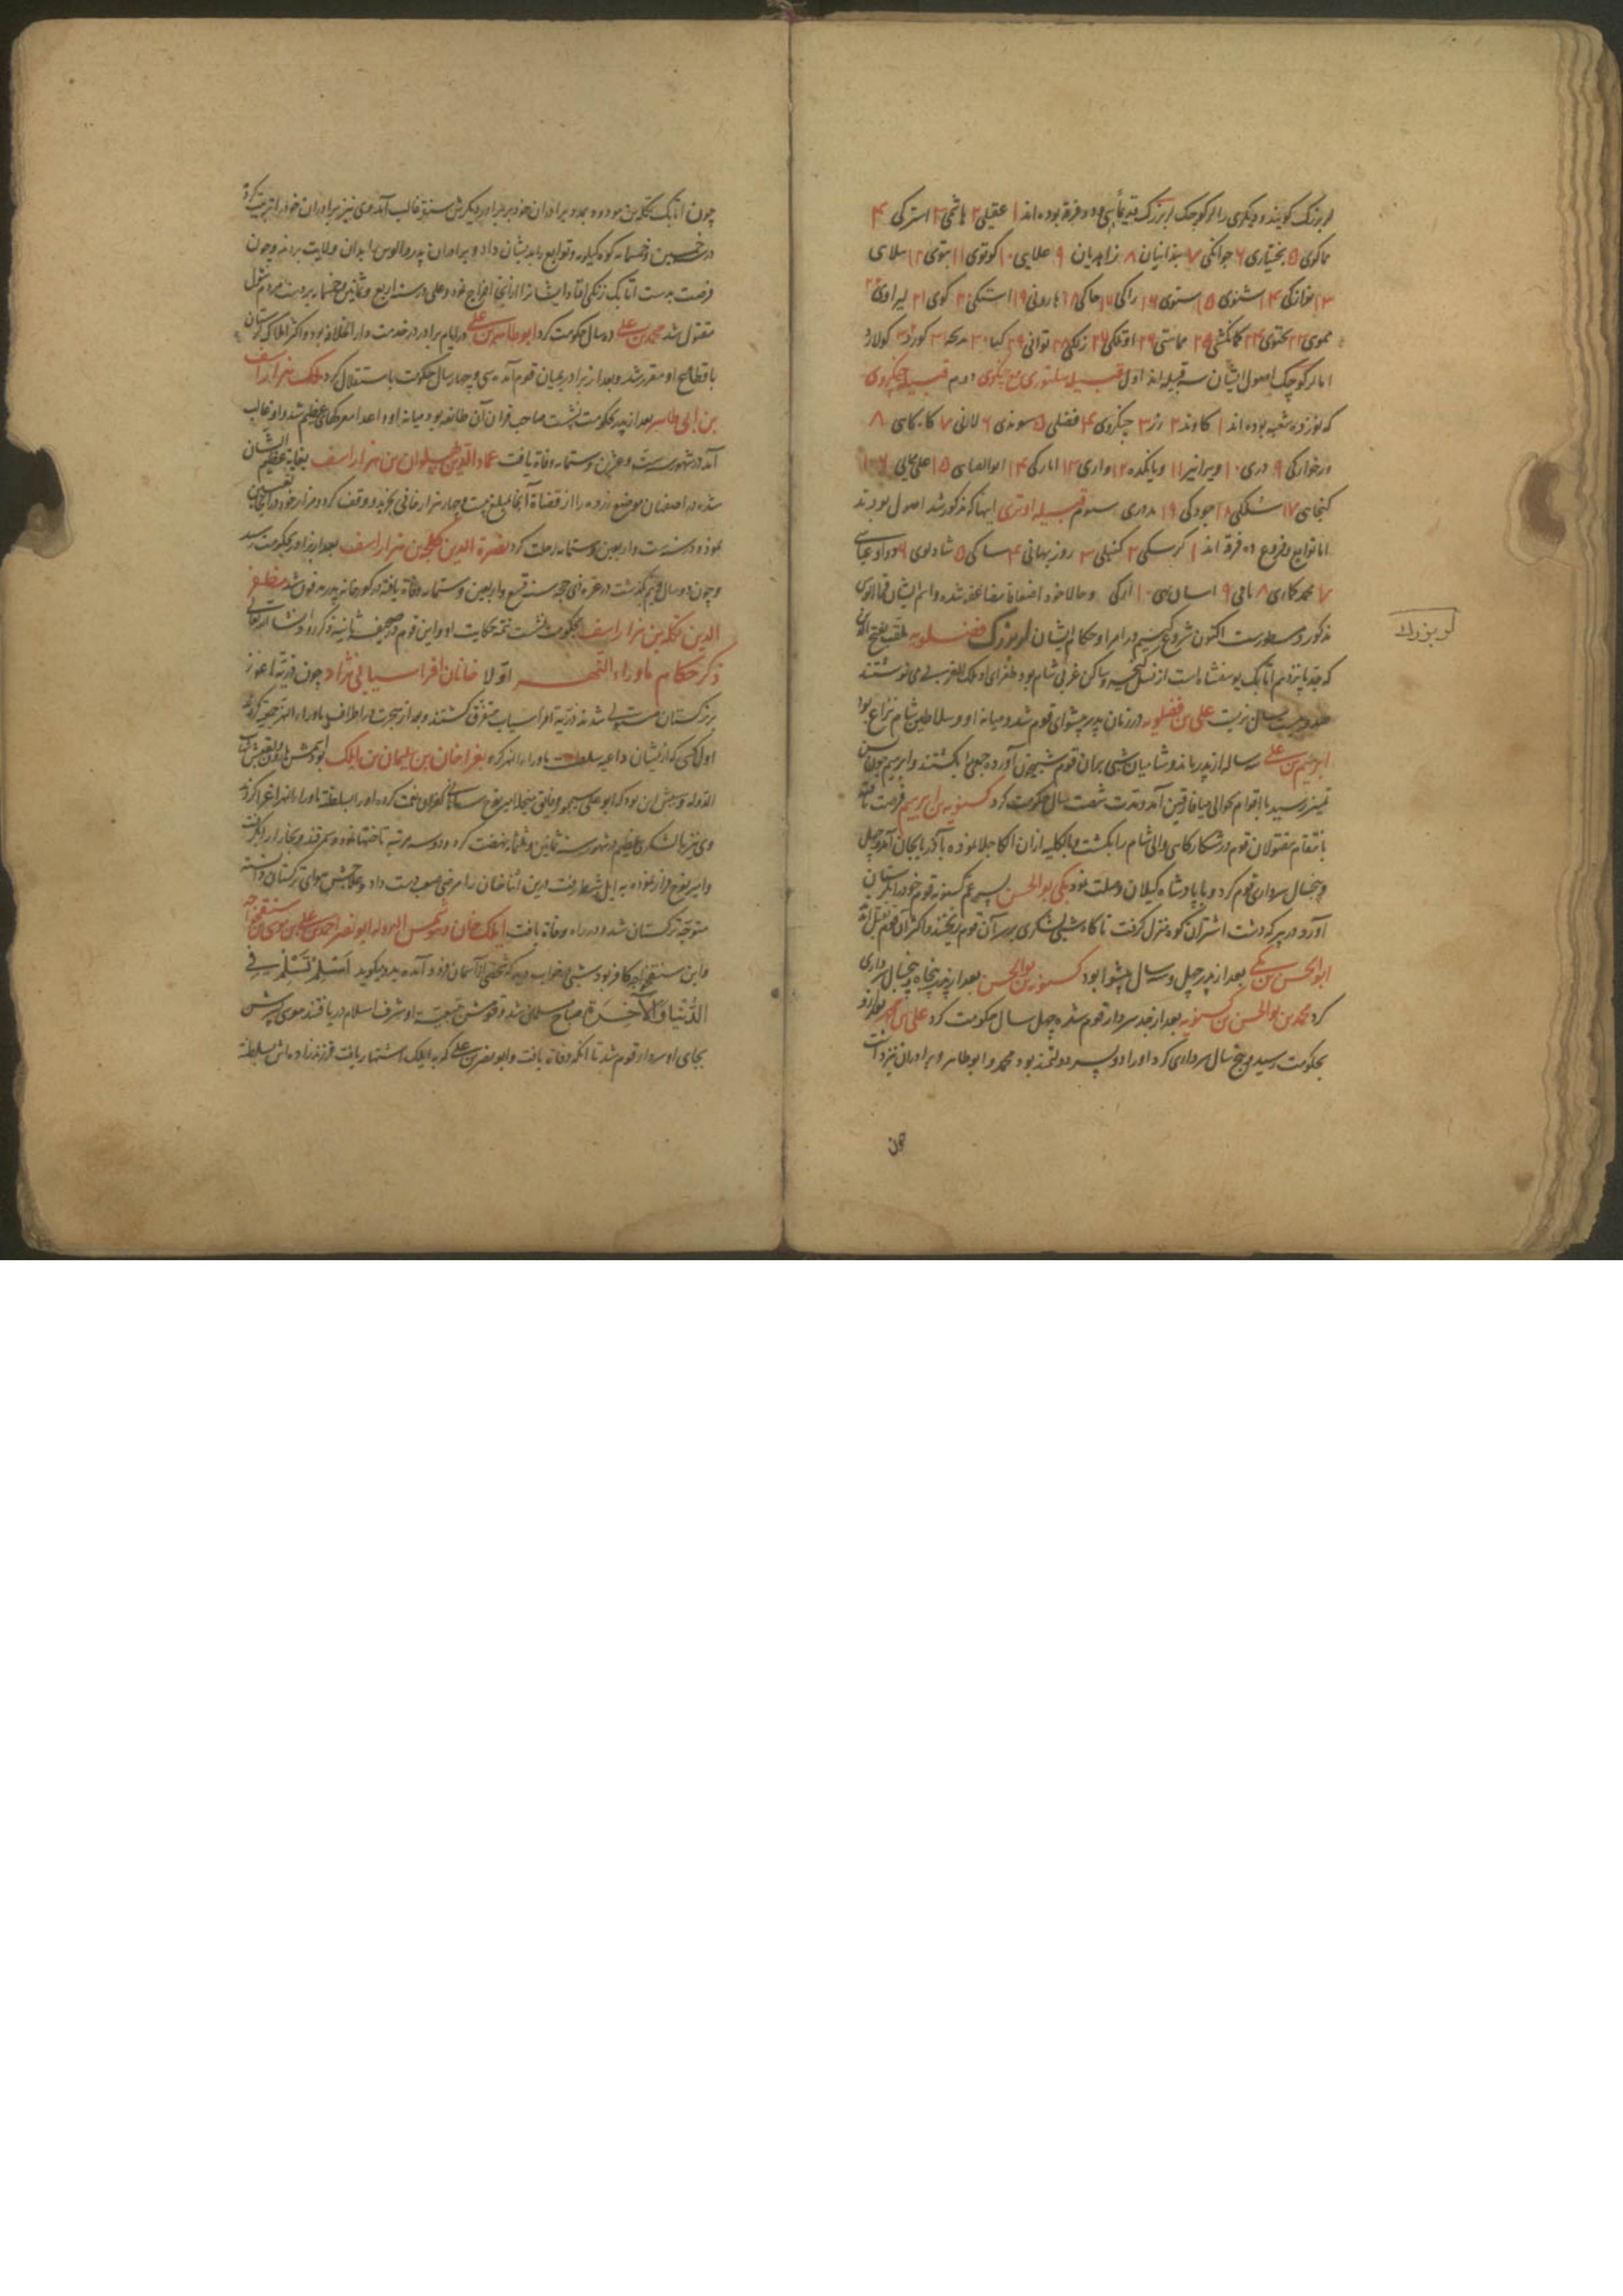 لر بزرک کویند و دیکری را لر کوچک لر بزرک قدیماً سی و دو فرقه بوده اند ۱ عقیلی ۲ هاشمی ۳ استرکی ۴
مماکوی ۵ بختیاری ۶ جوانکی ۷ بیدانیان ۸ زاهدیان ۹ علایی ۱۰ کوتوی ۱۱ بتوی ۱۲
۱۴ شنوی ۱۵ ستوی ۱۶ راکی ۱۷ خاکی ۱۸ هارونی ۱۹ اشکی ۲۰ کوی ۲۱ لیراوی
ممویی ۲۳ یحتوی ۲۴ کمانکشی ۲۵ مماستی ۲۶ اوملکی ۲۷ ۲۸ توانی ۲۹ کیا ۳۰ مدیحه ۳۱ کورد ۳۲ کولارد
اما لر کوچک اصول ایشان سه قبیله اند اول قبیله سلبوری مع جنکروی دوم قبیله جنکروی
که نوزده شعبه بوده اند ۱ کاوند ۲ رز ۳ جنکروی ۴ فضلی ۵ سوندی ۶ لالانی ۷ کاه کاهی ۸
درخوارکی ۹ دری ۱۰ ویراند ۱۱ ۱۲ واری ۱۳ امارکی ۱۴ ابوالعباسی ۱۵ علی ممایی ۱۶
کنجایی ۱۷ سلکی ۱۸ جودکی ۱۹ بدوری سیوم قبیله اوتری اینها که مذکور شد اصول بودند
اما توابع و فروع ده فرقه اند ۱ کرسکی ۲ کنبلی ۳ روزبهانی ۴ ساکی ۵ شادلوی ۶ داود عیاسی
۷ محمد کماری ۸ ۹ ۱۰ ارکی و حالا خود اضعافا مضاعفه شده و اسم ایشان
مذکور و مسطورست اکنون شروع کنیم در امرا و حکام ایشان لر بزرک فضلویه ملقب بفتح الدین
لر بزرك
که جد پانزدهم اتابک یوسفشاه است از نسل و ساکن غربی شام بود طغرای او ملک الغرب می نوشتند
صد و بیست سال بزیست علی بن فضلویه در زمان پدر پیشوای قوم شد و میانه او و سلاطین شام نزاع بود
ابراهیم بن علی سه ساله از پدر بماند و شامیان شبی بران قوم شبیخون آورده جمعی را بکشتند و ابراهیم چون بسن
تمیز رسید با اقوام بحوالی میافارقین آمد و مدت شصت سال حکومت کرد کسنویه بن ابراهیم فرصت یافته
بانتقام مقتولان قوم در شکارکاهی والی شام را بکشت و بالکلیه ازان الکا جلا نموده بآذربایجان آمد و چهل
و پنجسال سرداری قوم کرد و با پادشاه کیلان وصلت نمود بکی بوالحسن پسر عم کسنویه قوم خود را بلرستان
آورد و در پیرکه دشت اشتران کوه منزل کرفت ناکاه شبی لشکری بر سر آن قوم ریختند و اکثر آن قوم بقتل آمدند
ابوالحسن بن بکی بعد از پدر چهل و سه سال پیشوا بود کسنویه بن بوالحسن بعد از پدر پنجاه و پنجسال سرداری
کرد محمد بن بوالحسن بن کسنویه بعد از جد سردار قوم شده چهل سال حکومت کرد علی بن محمد بعد از او
بحکومت رسید و پنج سال سرداری کرد او را دو پسر دولتمند بود محمد و ابوطاهر و برادران نیز داشت
چون
چون اتابک تکله بن مودود بمدد برادران خود بر برادر دیکرش سنقر غالب آمد وی نیز برادران خود را تربیت کرد
در خمسین و خمسمایه کوه کیلویه و توابع را بدیشان داد و برادران پدر و الوس را بدان ولایت بردند و چون
فرصت بدست اتابک زنکی افتاد ایشانرا از آنجا اخراج نمود و علی در سنه اربع و ثمانین و خمسمایه بر دست مردم شول
مقتول شد محمد بن علی ده سال حکومت کرد ابوطاهر بن علی در ایام برادر در خدمت دار الخلافه بود و اکثر املاک لرستان
باقطاع او مقرر شد و بعد از برادر بمیان قوم آمده سی و چهار سال حکومت باستقلال کرد ملک هزاراسف
بن ابی طاهر بعد از پدر بحکومت نشست صاحب قران آن طایفه بود میانه او و اعدا معرکهای عظیم شد و او غالب
آمد در شهور ست و عشرین و ستمایه وفاة یافت عماد الدین پهلوان بن هزاراسف بغایة عظیم الشان
شده در اصفهان موضع را از قضاة آنجا بمبلغ بیست و چهار هزار خانی بخرید و وقف کرد و مزار خود در آنجا تعیین
نمود و در سنه ست و اربعین و ستمایه رحلت کرد نصرة الدین کلجه بن هزاراسف بعد از برادر بحکومت رسید
و چون دو سال و نیم بگذشت در غره ذی حجه سنه تسع و اربعین و ستمایه وفاة یافته در کورخانه پدر مدفون شد مظفر
الدین تکله بن هزاراسف بحکومت بنشست تتمه حکایت او و این قوم در صحیفه ثانیه ذکر رود انشاء الله تعالی
ذکر حکام ماوراء النهر اوّلا خانان افراسیابی نژاد چون ذریّة اغوز
بر ترکستان مستولی شدند ذریّة افراسیاب متفرق کشتند و بعد از هجرت در اطراف ماوراء النهر جمعیه کردند
اول کسی که از ایشان داعیه سلطنت ماوراء النهر کرد بغرا خان بن سلیمان بن ایلک بود اسمش هارون لقبش شهاب
الدوله و سببش این بود که ابوعلی سیمجور و فایق بنجد امیر نوح سامانی کفران نعمت کرده او را بسلطنة ماوراء النهر اغرا کردند
وی نیز با لشکری عظیم در شهور سنه ثمانین و ثلثمایه نهضت کرده و دو سه مرتبه تاختها نمود و سمرقند و بخارا را بکرفت
و امیر نوح فرار نموده به آمل شط رفت درین اثنا خان را مرضی صعب دست داد و علاجش هوای ترکستان دانسته
متوجّه ترکستان شد و در راه وفاة یافت ایلک خان و شمس الدوله ابونصر احمد بن علی بن موسی بن سنقخ
و این سنقخ اولا کافر بود شبی در خواب دید که شخصی از آسمان فرود آمده بدو میکوید اَسْلِمْ تَسْلَمْ فی
الدُّنْیا وَالْآخِرَة صباح مسلمان شد و قومش بتبعیّة او شرف اسلام دریافتند موسی پسرش
بجای او سردار قوم شد تا آنکه وفاة یافت و ابونصر بن علی که به ایلک اشتهار یافت فرزندزاده اش بسلطنة